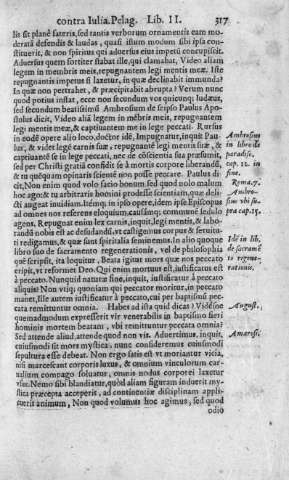 contra Iulia. Pelag. Lib. II. 317
lis sit planè fateris, sed tantis verborum ornamentis eam mo-
derata defendis & laudas, quasi illum modum sibi ipsa con-
stituerit, & non spiritus qui aduersus eius impetū concupiscit.
Aduersus quem fortiter stabat ille, qui clamabat, Video aliam
legem in membris meis, repugnantem legi mentis meæ. Iste
repugnantis impetus si laxetur, in quæ declinabit immunda?
In quæ non pertrahet, & præcipitabit abrupta? Verum nunc
quod potius instat, ecce non secundum vos quicunq; Iudæus,
sed secundum beatissimū Ambrosium de seipso Paulus Apo-
stolus dicit, Video aliā legem in mēbris meis, repugnantem
legi mentis meæ, & captiuantem me in lege peccati. Rursus
in eodē opere alio loco, doctor idē, Impugnatur, inquit Pau-
lus, & videt legē carnis suæ, repugnantē legi mentis suæ, &
captiuantē se in lege peccati, nec de cōscientia sua præsumit,
sed per Christi gratiā confidit se à mortis corpore liberandū,
& tu quēquam opinaris scientē non posse peccare. Paulus di-
cit, Non enim quod volo facio bonum, sed quod nolo malum
hoc ago: & tu arbitraris homini prodesse scientiam, quæ deli-
cti augeat inuidiam. Itēmq; in ipso opere, idem ipse Episcopus
ad omnes nos referens eloquium, causámq; communē sedulò
agens, Repugnat enim lex carnis, inquit, legi mentis, & labo-
randū nobis est ac desudandū, vt castigemus corpus & seruitu-
ti redigamus, & quæ sunt spiritalia seminemus. In alio quoque
libro suo de sacramento regenerationis, vel de philosophia
quē scripsit, ita loquitur, Beata igitur mors quæ nos peccato
eripit, vt reformet Deo. Qui enim mortuus est, iustificatus est
à peccato. Nunquid naturæ fine, inquit, iustificatur à peccato
aliquis? Non vtiq; quoniam qui peccator moritur, in peccato
manet, Ille autem iustificatur à peccato, cui per baptismū pec-
cata remittuntur omnia. Habes ad ista quid dicas? Vidésne
quemadmodum expresserit vir venerabilis in baptismo fieri
hominis mortem beatam, vbi remittuntur peccata omnia?
Sed attende aliud, attende quod non vis. Aduertimus, inquit,
cuiusmodi sit mors mystica: nunc consideremus cuiusmodi
sepultura esse debeat. Non ergo satis est vt moriantur vitia,
nisi marcescant corporis luxus, & omnium vinculorum car-
nalium compago soluatur, omnis nodus corporei laxetur
vsus. Nemo sibi blandiatur, quòd aliam figuram induerit my-
stica præcepta acceperit, ad continentiæ disciplinam appli-
cuerit animum, Non quod volumus hoc agimus, sed quod
odio
Ambrosius
in libro de
paradiso,
cap. 12. in
fine.
Roma.7.
Ambro-
sius vbi su-
pra cap.15.
Idē in lib.
de sacramē-
to regene-
rationis.
August.
Ambrosi.